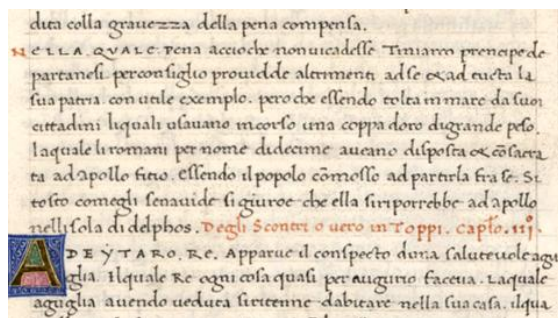 dita colla gravezza della pena compensa.
NELLA. QVALE. Pena accioche non vicadesse Timiarro prencipe de
partanesi per consiglio providde altrimenti ad se & ad tucta la
sua patria con utile exemplo. pero che essendo tolta in mare da suoi
cittadini li quali usavano in corso una coppa doro di grande peso.
la quale li romani per nome di decime aveano disposta & cōsacra
ta ad apollo fitio. essendo il popolo cōmosso ad partirla fra se. Si
tosto come gli senavide si giuroe che ella si riporrebbe ad apollo
nellisola di delphos. Degli Scontri o vero inToppi. Capło. iijº
A DEŸTARO. RE. Apparve il conspecto duna salutevole agu
glia. Il quale Re ogni cosa quasi per augurio faceva. La quale
aguglia avendo veduta si ritenne dabitare nella sua casa. il qua